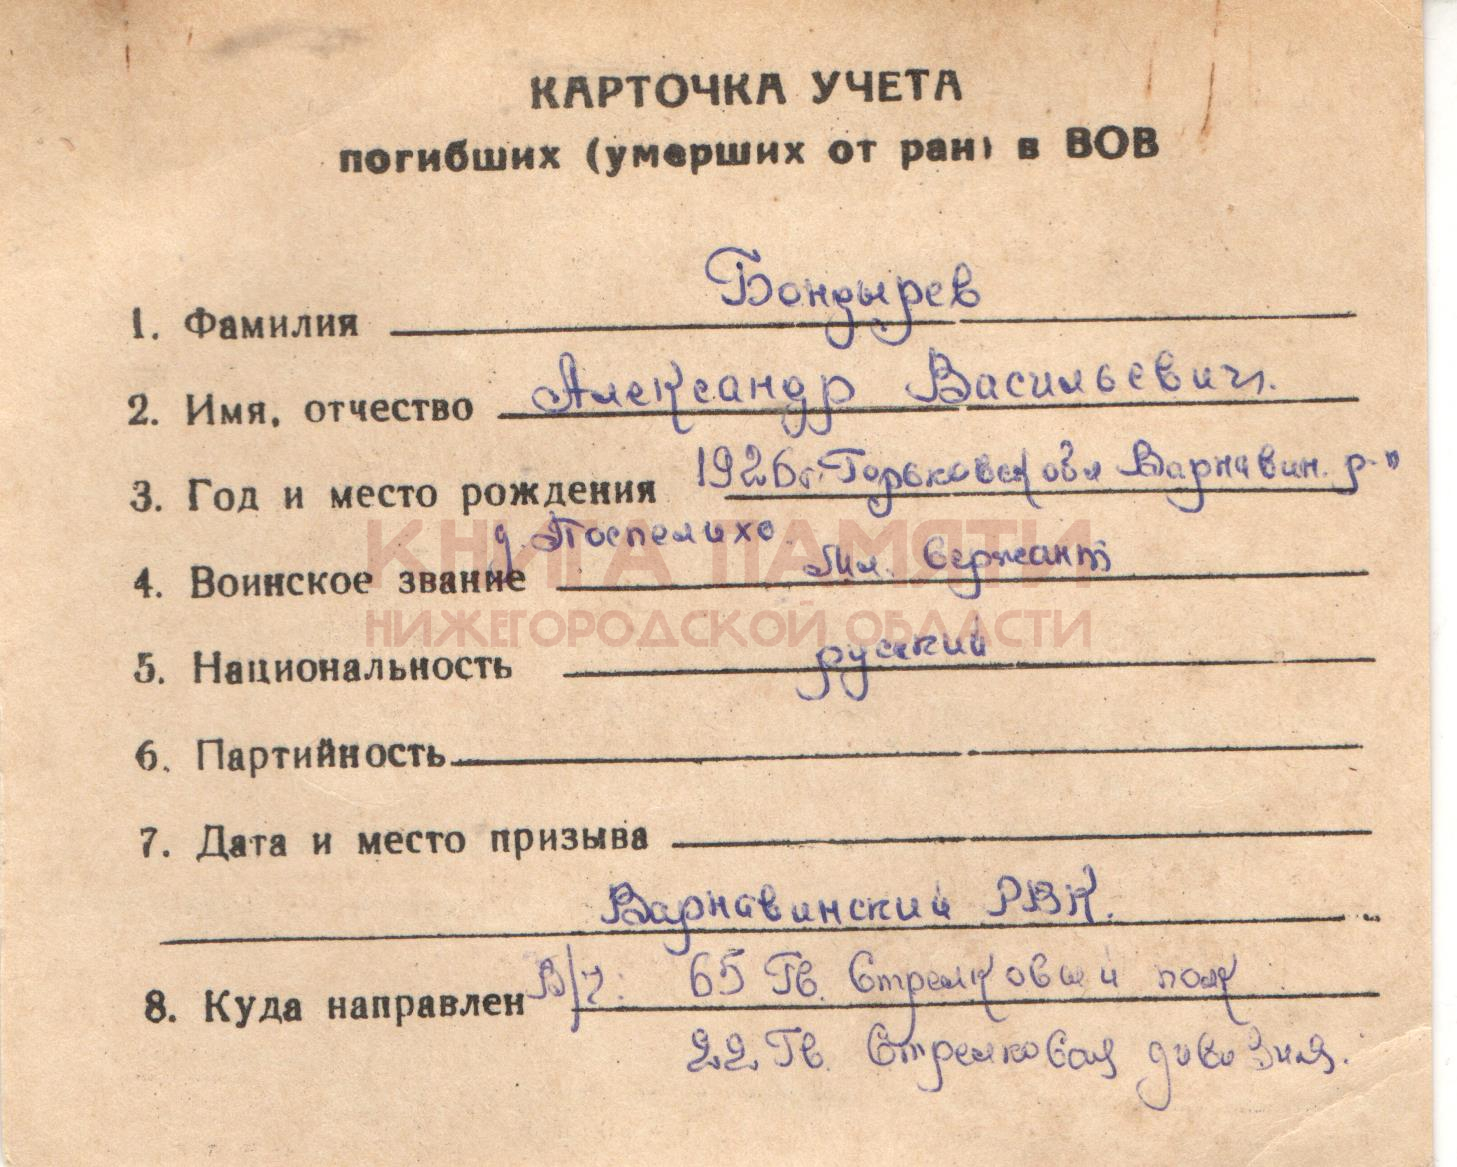 КАРТОЧКА УЧЕТА
погибших (умерших от ран) в ВОВ
1. Фамилия Бондырев
2. Имя, отчество Александр Васильевич.
3. Год и место рождения 1926г. Горьковск обл Варнавин. р-н
д. Поспелихо
КНИГА ПАМЯТИ
4. Воинское звание Мл. Сержант
НИЖЕГОРОДСКОЙ ОБЛАСТИ
5. Национальность русский
6. Партийность
7. Дата и место призыва
Варнавинский РВК.
8. Куда направлен В/ч: 65 Гв. Стрелковый полк
22 Гв. Стрелковая дивизия.